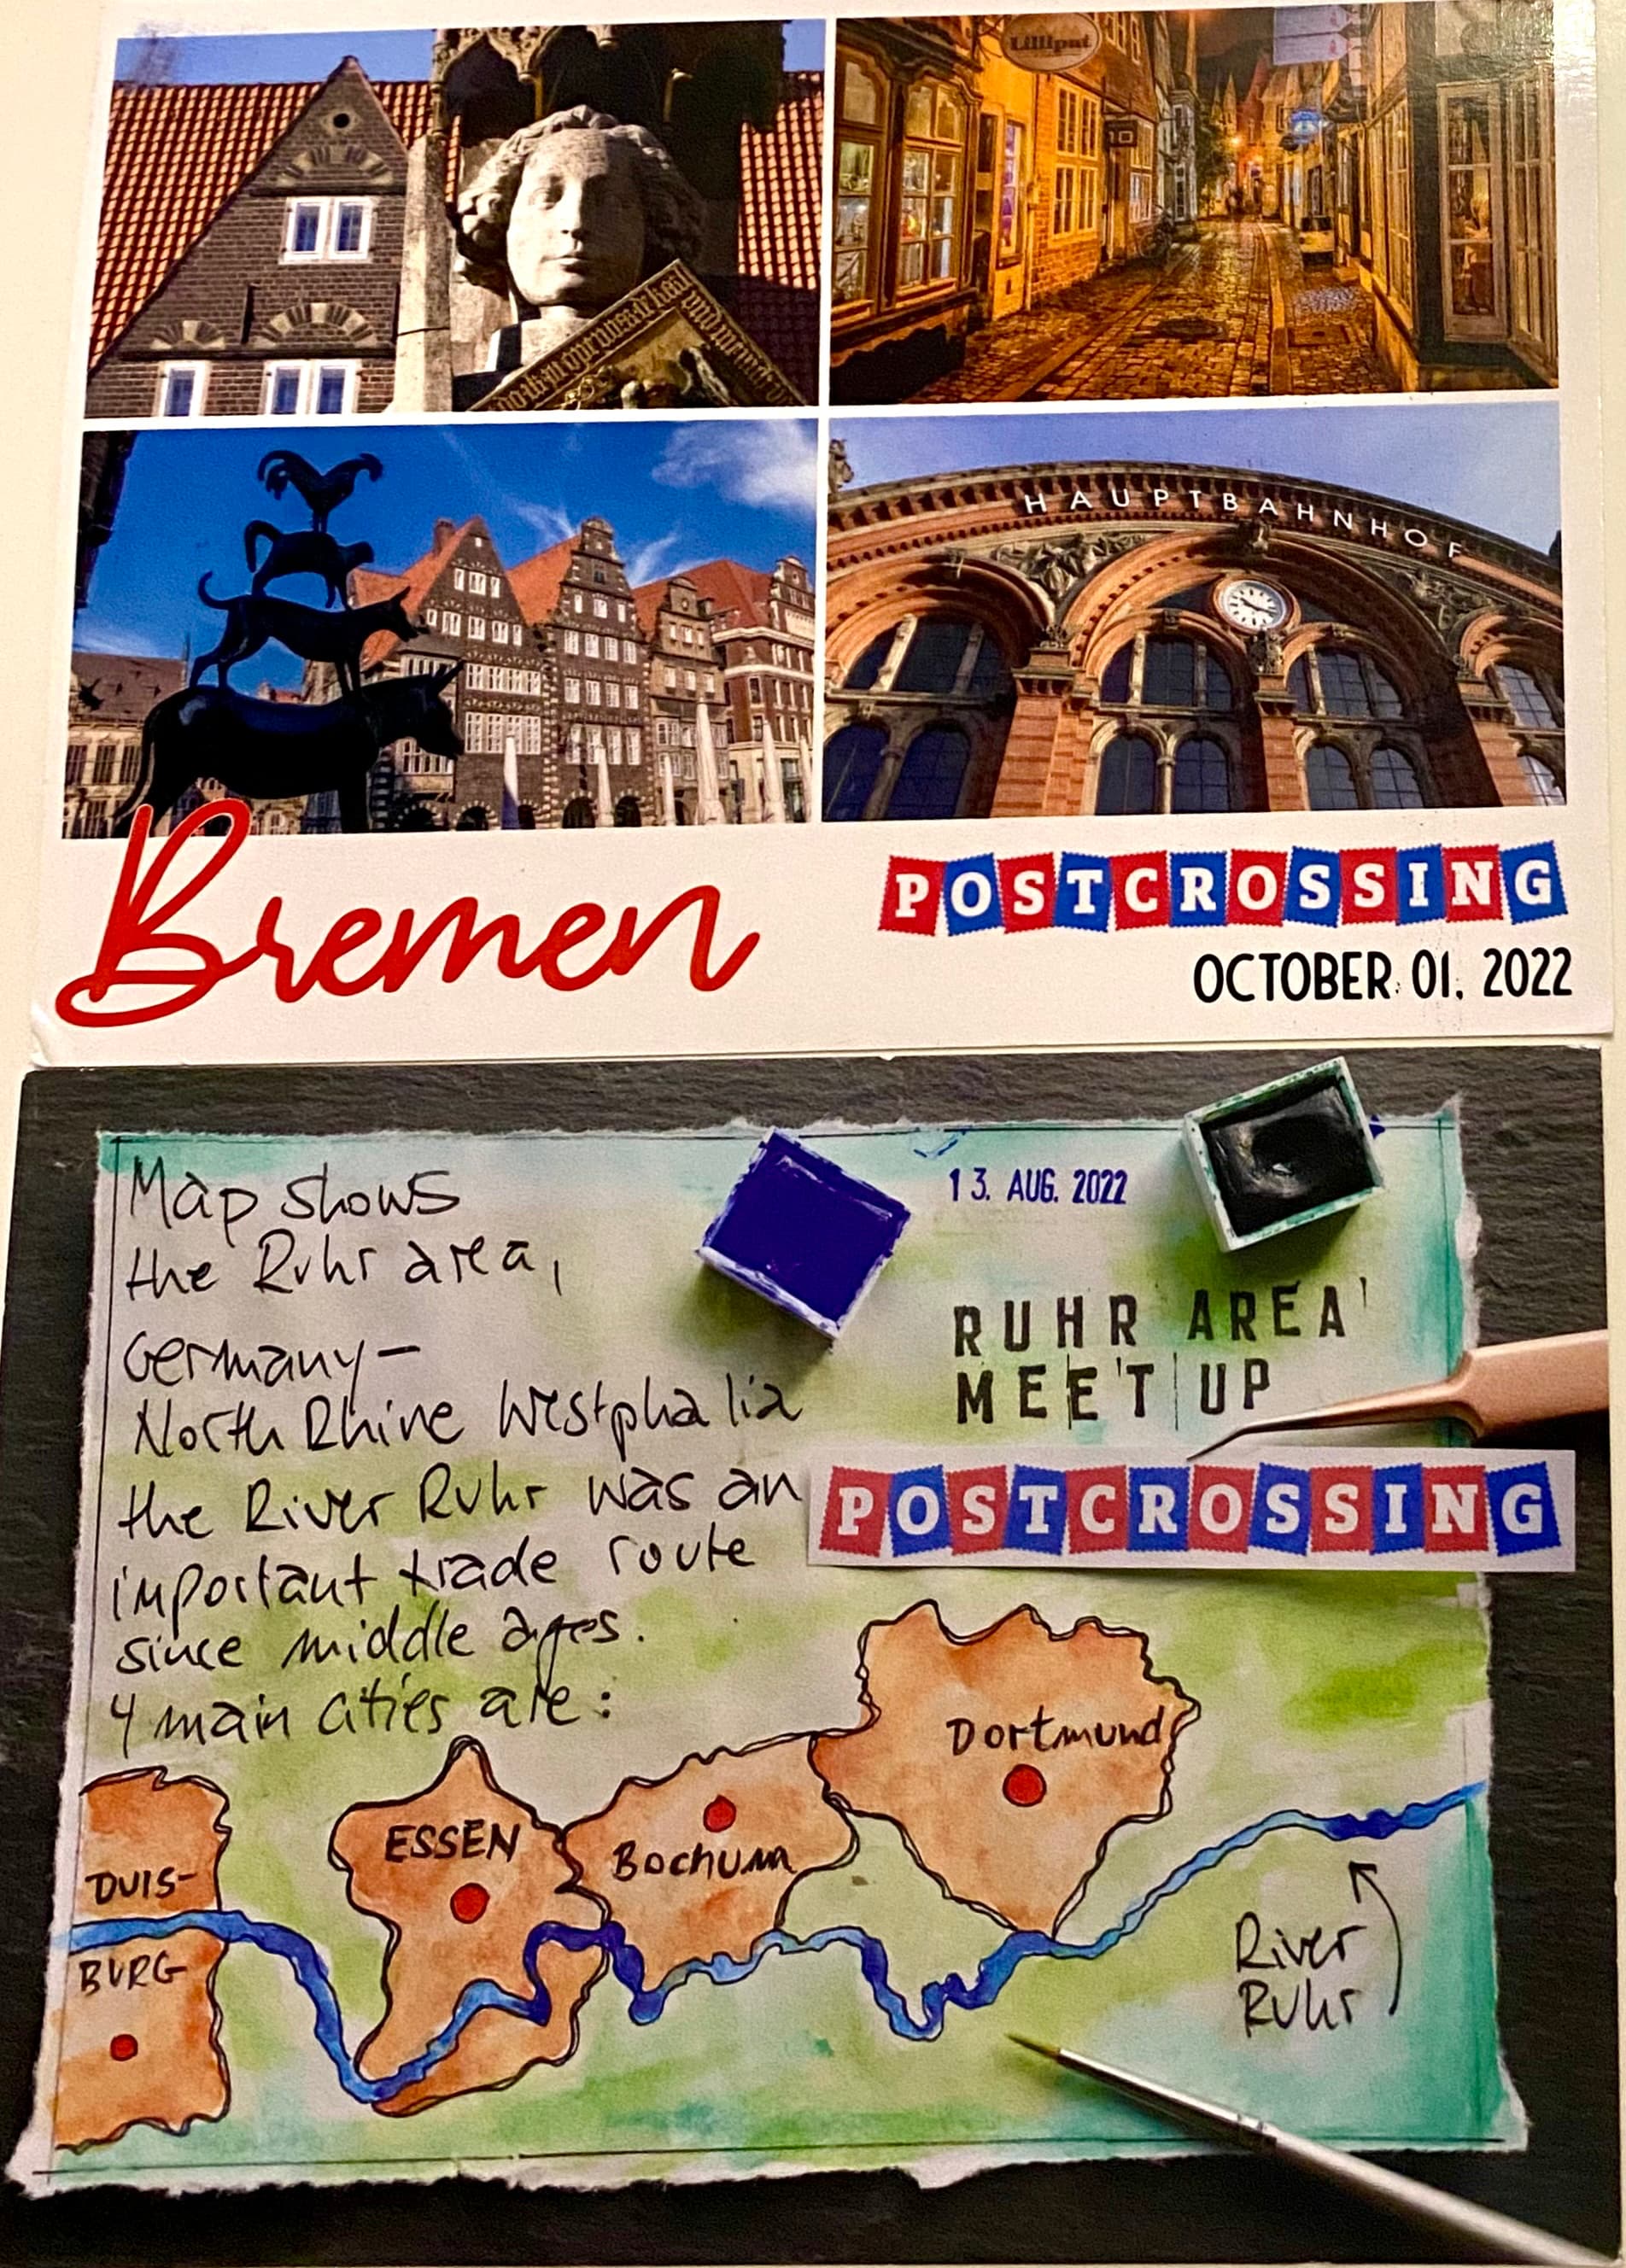 Lilliput
10
HAUPTBAHNHOF
Bremen
POSTCROSSING
OCTOBER 01, 2022
Map shows
the Ruhr area,
Germany –
North Rhine Westphalia
the River Ruhr was an
important trade route
since middle ages.
4 main cities are:
13. AUG. 2022
RUHR AREA
MEET UP
POSTCROSSING
Dortmund
ESSEN
Bochum
DUIS-
BURG
River
Ruhr